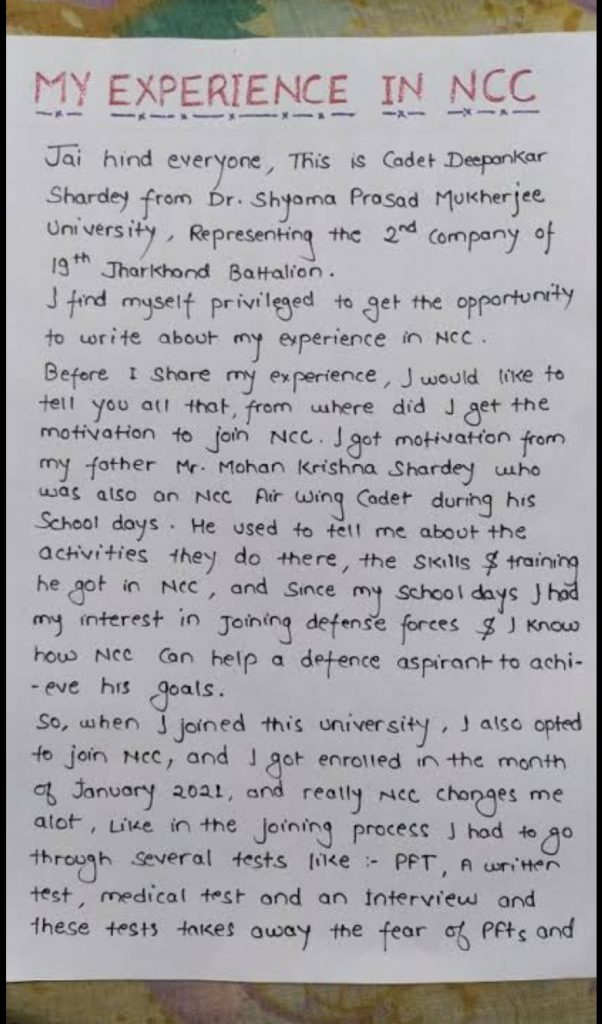 MY EXPERIENCE IN NCC
Jai hind everyone, This is Cadet Deepankar
Shardey from Dr. Shyama Prasad Mukherjee
University, Representing the 2nd Company of
19th Jharkhand Battalion.
I find myself privileged to get the opportunity
to write about my experience in NCC.
Before I share my experience, I would like to
tell you all that, from where did I get the
motivation to join NCC. I got motivation from
my father Mr. Mohan Krishna Shardey who
was also an NCC Air Wing Cadet during his
School days. He used to tell me about the
activities they do there, the skills & training
he got in NCC, and since my school days I had
my interest in Joining defense forces & I know
how NCC can help a defence aspirant to achi-
-eve his goals.
So, when I joined this university, I also opted
to join NCC, and I got enrolled in the month
of January 2021, and really NCC changes me
alot, Like in the joining process I had to go
through several tests like :- PFT, A written
test, medical test and an interview and
these tests takes away the fear of PFTs and